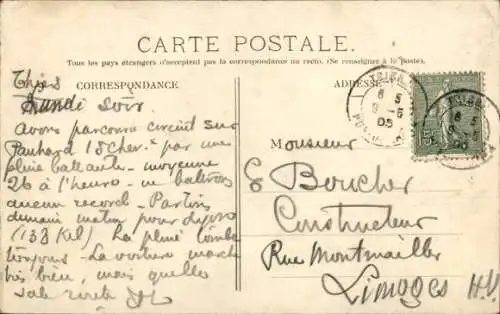 CARTE POSTALE.
Tous les pays étrangers n'acceptent pas la correspondance au recto. (Se renseigner à la poste.)
CORRESPONDANCE
ADRESSE
Thiers
Lundi soir
Avons parcouru circuit sur
Panhard 18 chex par une
pluie battante - moyenne
26 à l'heure - ne battrons
aucun record - Partons
demain matin pour
(133 Kil) La pluie tombe
toujours - La voiture marche
très bien, mais quelle
sale route
Monsieur
E Boucher
Constructeur
Rue Montmailler
Limoges H.V.
THIERS
8 5
9 - 5
05
PUY
15c
THIERS
8 5